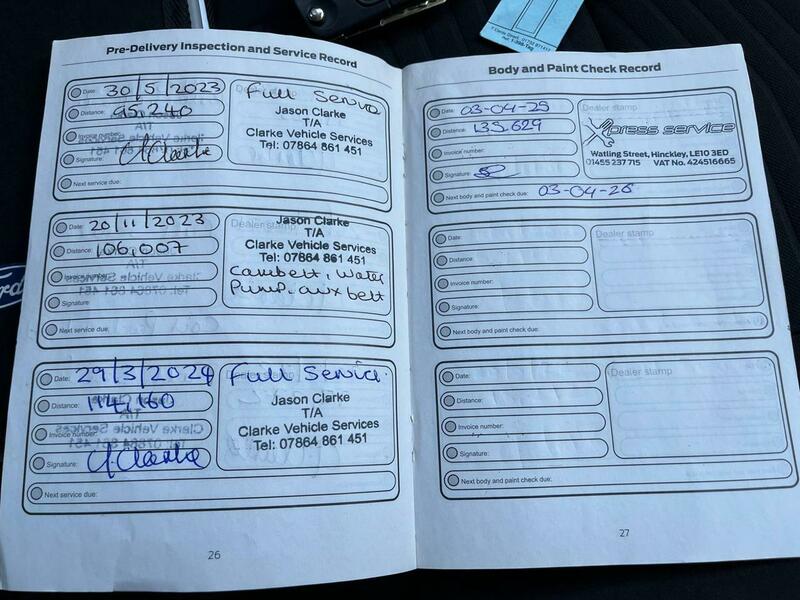 Pre-Delivery Inspection and Service Record
Date: 30/5/2023
Distance: 95,240
Invoice number:
Signature: CJClarke
Next service due:
Full Service
Jason Clarke
T/A
Clarke Vehicle Services
Tel: 07864 861 451
Date: 20/11/2023
Distance: 106,007
Invoice number:
Signature:
Next service due:
Dealer stamp
Jason Clarke
T/A
Clarke Vehicle Services
Tel: 07864 861 451
Cambelt, Water
Pump, aux belt
Date: 29/3/2024
Distance: 114,160
Invoice number:
Signature: CJ.Clarke
Next service due:
Full Service.
Jason Clarke
T/A
Clarke Vehicle Services
Tel: 07864 861 451
26
Body and Paint Check Record
Date: 03-04-25
Distance: 135,629
Invoice number:
Signature:
Next body and paint check due: 03-04-26
Dealer stamp
Xpress service
Watling Street, Hinckley, LE10 3ED
01455 237 715 VAT No. 424516665
Date:
Distance:
Invoice number:
Signature:
Next body and paint check due:
Dealer stamp
Date:
Distance:
Invoice number:
Signature:
Next body and paint check due:
Dealer stamp
27